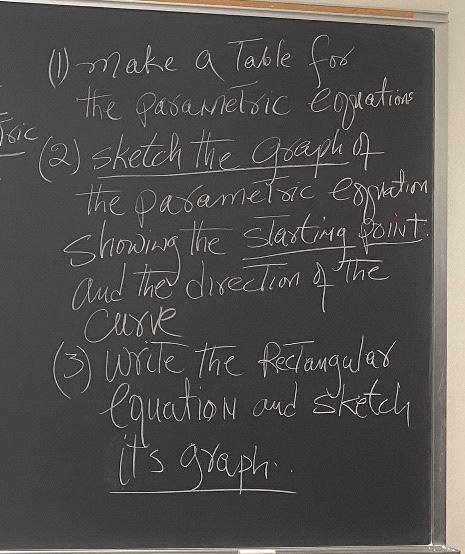 (1) make a Table for
the parametric equations
tric
(2) sketch the graph of
the parametric equation
showing the starting point.
and the direction of the
curve
(3) write the Rectangular
equation and sketch
it's graph..